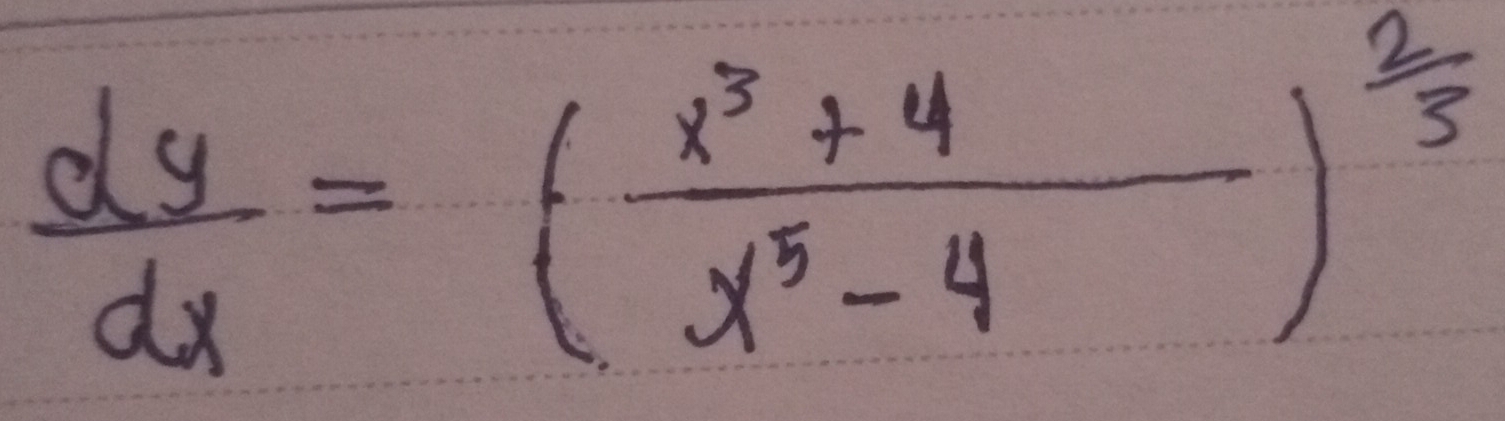 dy/dx = ( (x³ + 4)/(x⁵ - 4) )^(2/3)